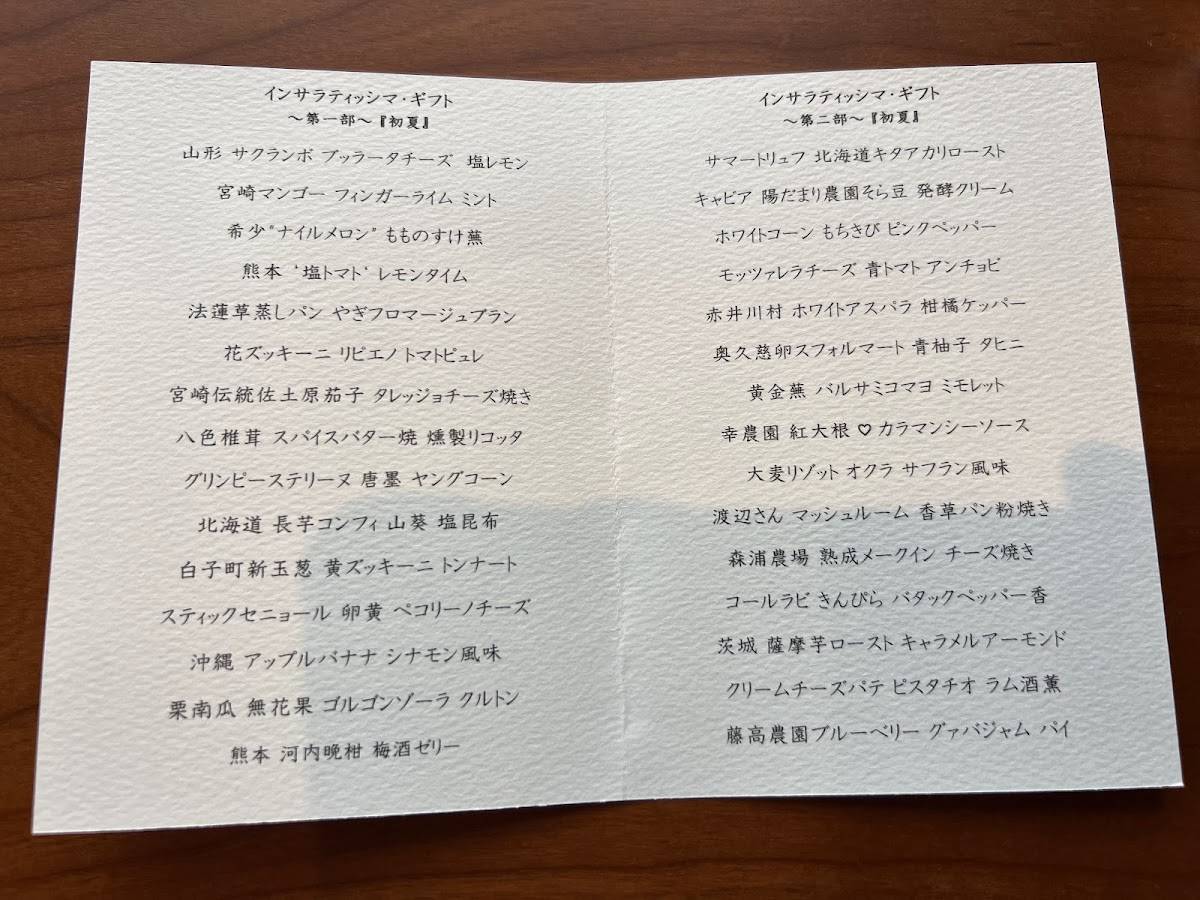 インサラティッシマ・ギフト
～第一部～『初夏』
山形 サクランボ ブッラータチーズ 塩レモン
宮崎マンゴー フィンガーライム ミント
希少"ナイルメロン" もものすけ蕪
熊本 '塩トマト' レモンタイム
法蓮草蒸しパン やぎフロマージュブラン
花ズッキーニ リピエノ トマトピュレ
宮崎伝統佐土原茄子 タレッジョチーズ焼き
八色椎茸 スパイスバター焼 燻製リコッタ
グリンピーステリーヌ 唐墨 ヤングコーン
北海道 長芋コンフィ 山葵 塩昆布
白子町新玉葱 黄ズッキーニ トンナート
スティックセニョール 卵黄 ペコリーノチーズ
沖縄 アップルバナナ シナモン風味
栗南瓜 無花果 ゴルゴンゾーラ クルトン
熊本 河内晩柑 梅酒ゼリー
インサラティッシマ・ギフト
～第二部～『初夏』
サマートリュフ 北海道キタアカリロースト
キャビア 陽だまり農園そら豆 発酵クリーム
ホワイトコーン もちきび ピンクペッパー
モッツァレラチーズ 青トマト アンチョビ
赤井川村 ホワイトアスパラ 柑橘ケッパー
奥久慈卵スフォルマート 青柚子 タヒニ
黄金蕪 バルサミコマヨ ミモレット
幸農園 紅大根♡カラマンシーソース
大麦リゾット オクラ サフラン風味
渡辺さん マッシュルーム 香草パン粉焼き
森浦農場 熟成メークイン チーズ焼き
コールラビ きんぴら バタックペッパー香
茨城 薩摩芋ロースト キャラメルアーモンド
クリームチーズパテ ピスタチオ ラム酒薫
藤高農園ブルーベリー グァバジャム パイ